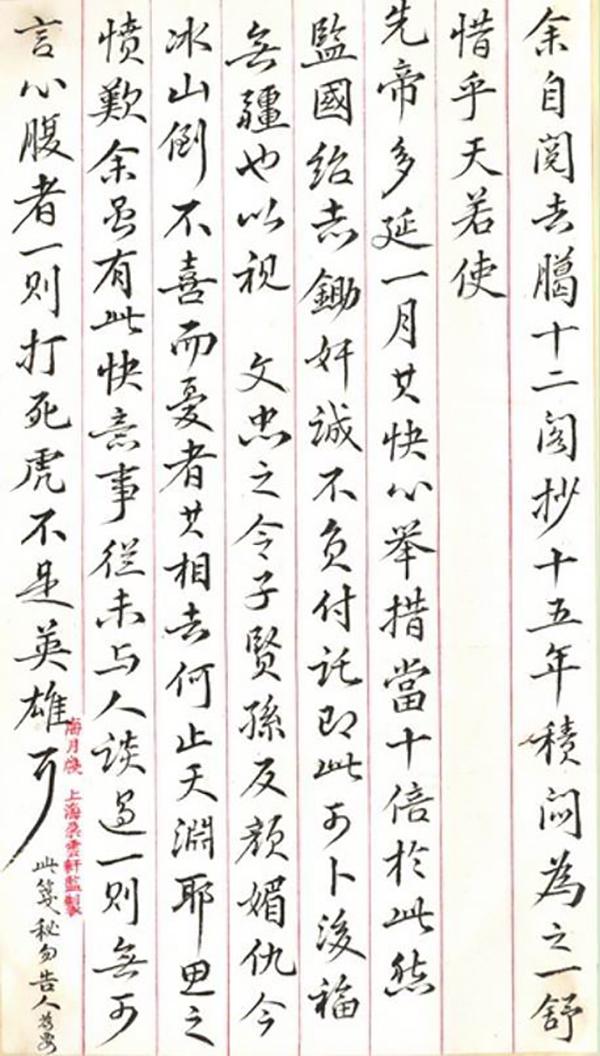 余自閱去臈十二閣抄十五年積悶為之一舒
惜乎天若使
先帝多延一月其快心举措當十倍於此然
監國紹志鋤奸誠不负付託即此可卜後福
無疆也以視 文忠之令子賢孫反颜媚仇今
冰山倒不喜而憂者其相去何止天淵耶思之
愤歎余虽有此快意事從未与人談過一则無可
言心腹者一则打死虎不足英雄耳
此箋秘勿告人為要
海月楼 上海朵雲軒監製